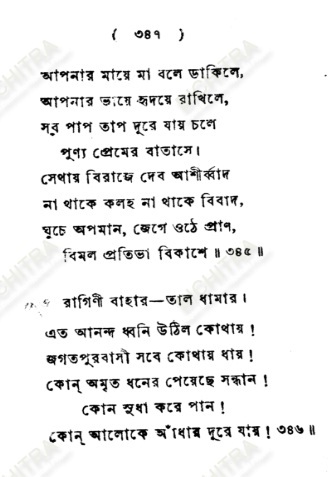 ( ৩৪৭ )
আপনার মায়ে মা বলে ডাকিলে,
আপনার ভায়ে হৃদয়ে রাখিলে,
সব পাপ তাপ দূরে যায় চলে
পুণ্য প্রেমের বাতাসে।
সেথায় বিরাজে দেব আশীর্ব্বাদ
না থাকে কলহ না থাকে বিবাদ,
ঘুচে অপমান, জেগে ওঠে প্রাণ,
বিমল প্রতিভা বিকাশে॥ ৩৪৫॥
রাগিণী বাহার—তাল ধামার।
এত আনন্দ ধ্বনি উঠিল কোথায়!
জগতপুরবাসী সবে কোথায় ধায়!
কোন্ অমৃত ধনের পেয়েছে সন্ধান!
কোন সুধা করে পান!
কোন্ আলোকে আঁধার দূরে যায়! ৩৪৬॥